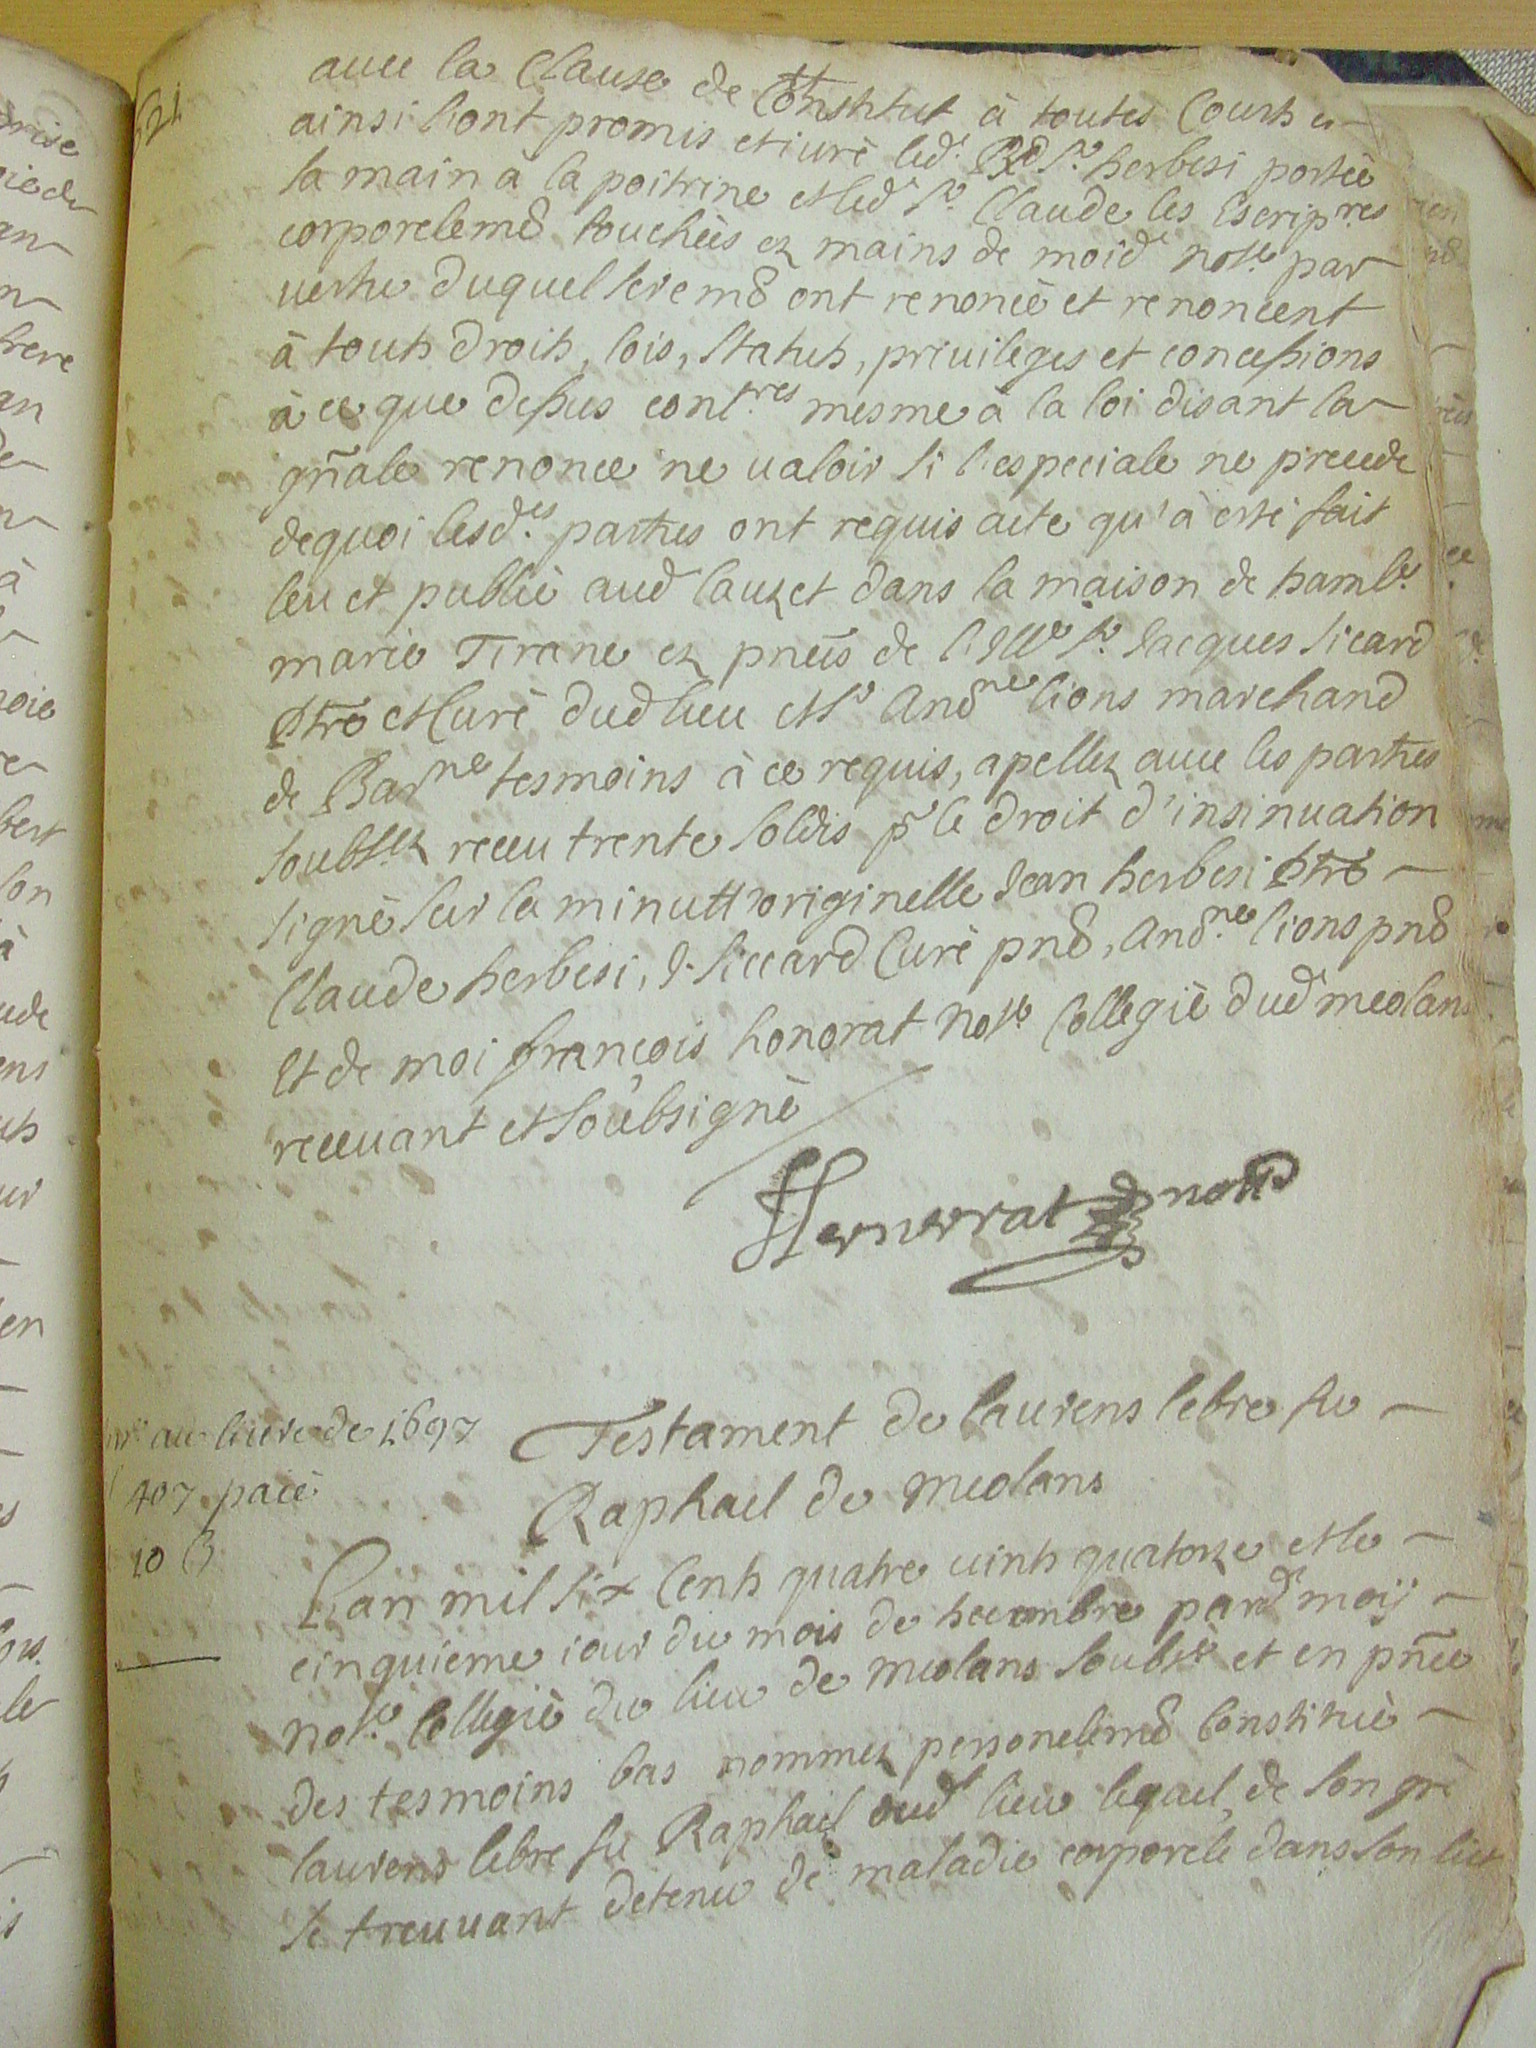 521
auec la Clause de Constitut à toutes Cours et
ainsi l'ont promis et iuré led. Rd Sr. herbesi portée
la main à la poitrine et led Sr. Claude les Escrip.res
corporelemt touchées ez mains de moid. not.e par
uertu duquel seremt ont renoncé et renoncent
à touts droits, lois, Statuts, priuileges et concessions
à ce que dessus cont.res mesme à la loi disant la
gñale renonce ne ualoir si l'especiale ne precede
dequoi lesd.es parties ont requis acte qu'à esté fait
leu et publié aud lauzet dans la maison de hamb.e
marie Tirane ez pñcs de Sr. Jacques Sicard
ptre et Curé dud lieu et Sr And.ne lions marchand
de Bar.ne tesmoins à ce requis, apellez auec les parties
soubs.ez receu trente soldis pr le droit d'insinuation
signé sur la minutte originelle Jean herbesi ptre
Claude herbesi, J. Siccard Curé pnt, And.ne lions pnt
Et de moi françois honorat Not.e Collegié dud meolans
receuant et soubsigné
Honnorat nott
au liure de 1697
407 paié
10
Testament de laurens lebre fu
Raphael de meolans
L'an mil six Cents quatre uints quatorze et le
cinquieme iour du mois de hecembre pard moij
not.e Collegié du lieu de meolans soubs.é et en pñce
des tesmoins bas nommez personelemt Constitué
laurens lebre fu Raphael dud lieu lequel de son gré
se treuuant detenu de maladie corporele dans son lict